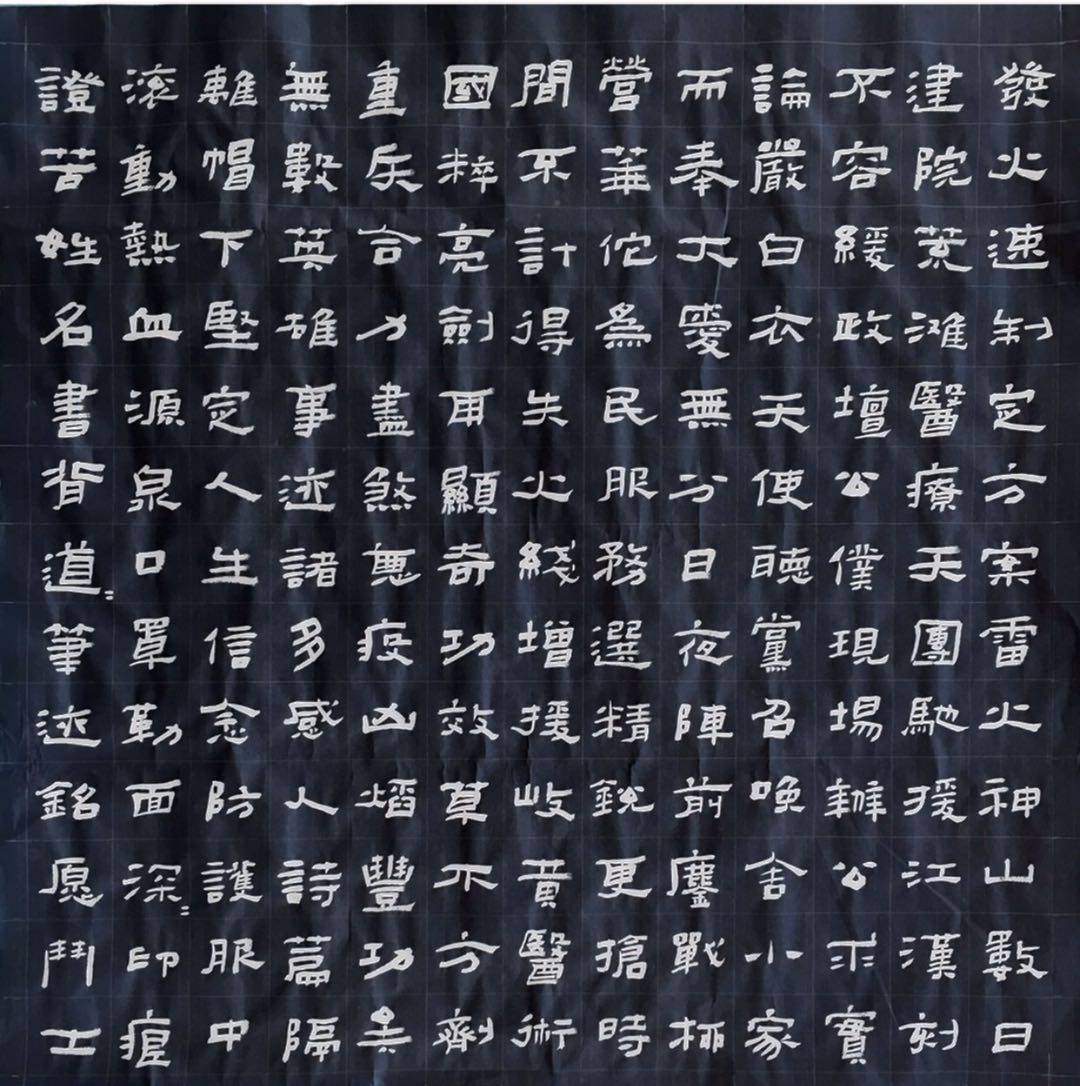 發火速制定方案雷火神山數日
建院荒滩醫療天團馳援江漢刻
不容緩政壇公僕現場辦公求實
論嚴白衣天使聽黨召喚舍小家
而奉大愛無分日夜陣前鏖戰極
營華佗為民服務選精銳更搶時
間不計得失火綫增援岐黄醫術
國粹亮劍再顯奇功效草不方劑
重合力盡煞疫凶焰豐功矣
無數英雄事迹諸多感人詩篇隔
離帽下堅定人生信念防護服中
滚動熱血源泉口罩勒面深=印痕
證苦姓名書背道=筆迹銘愿鬥士